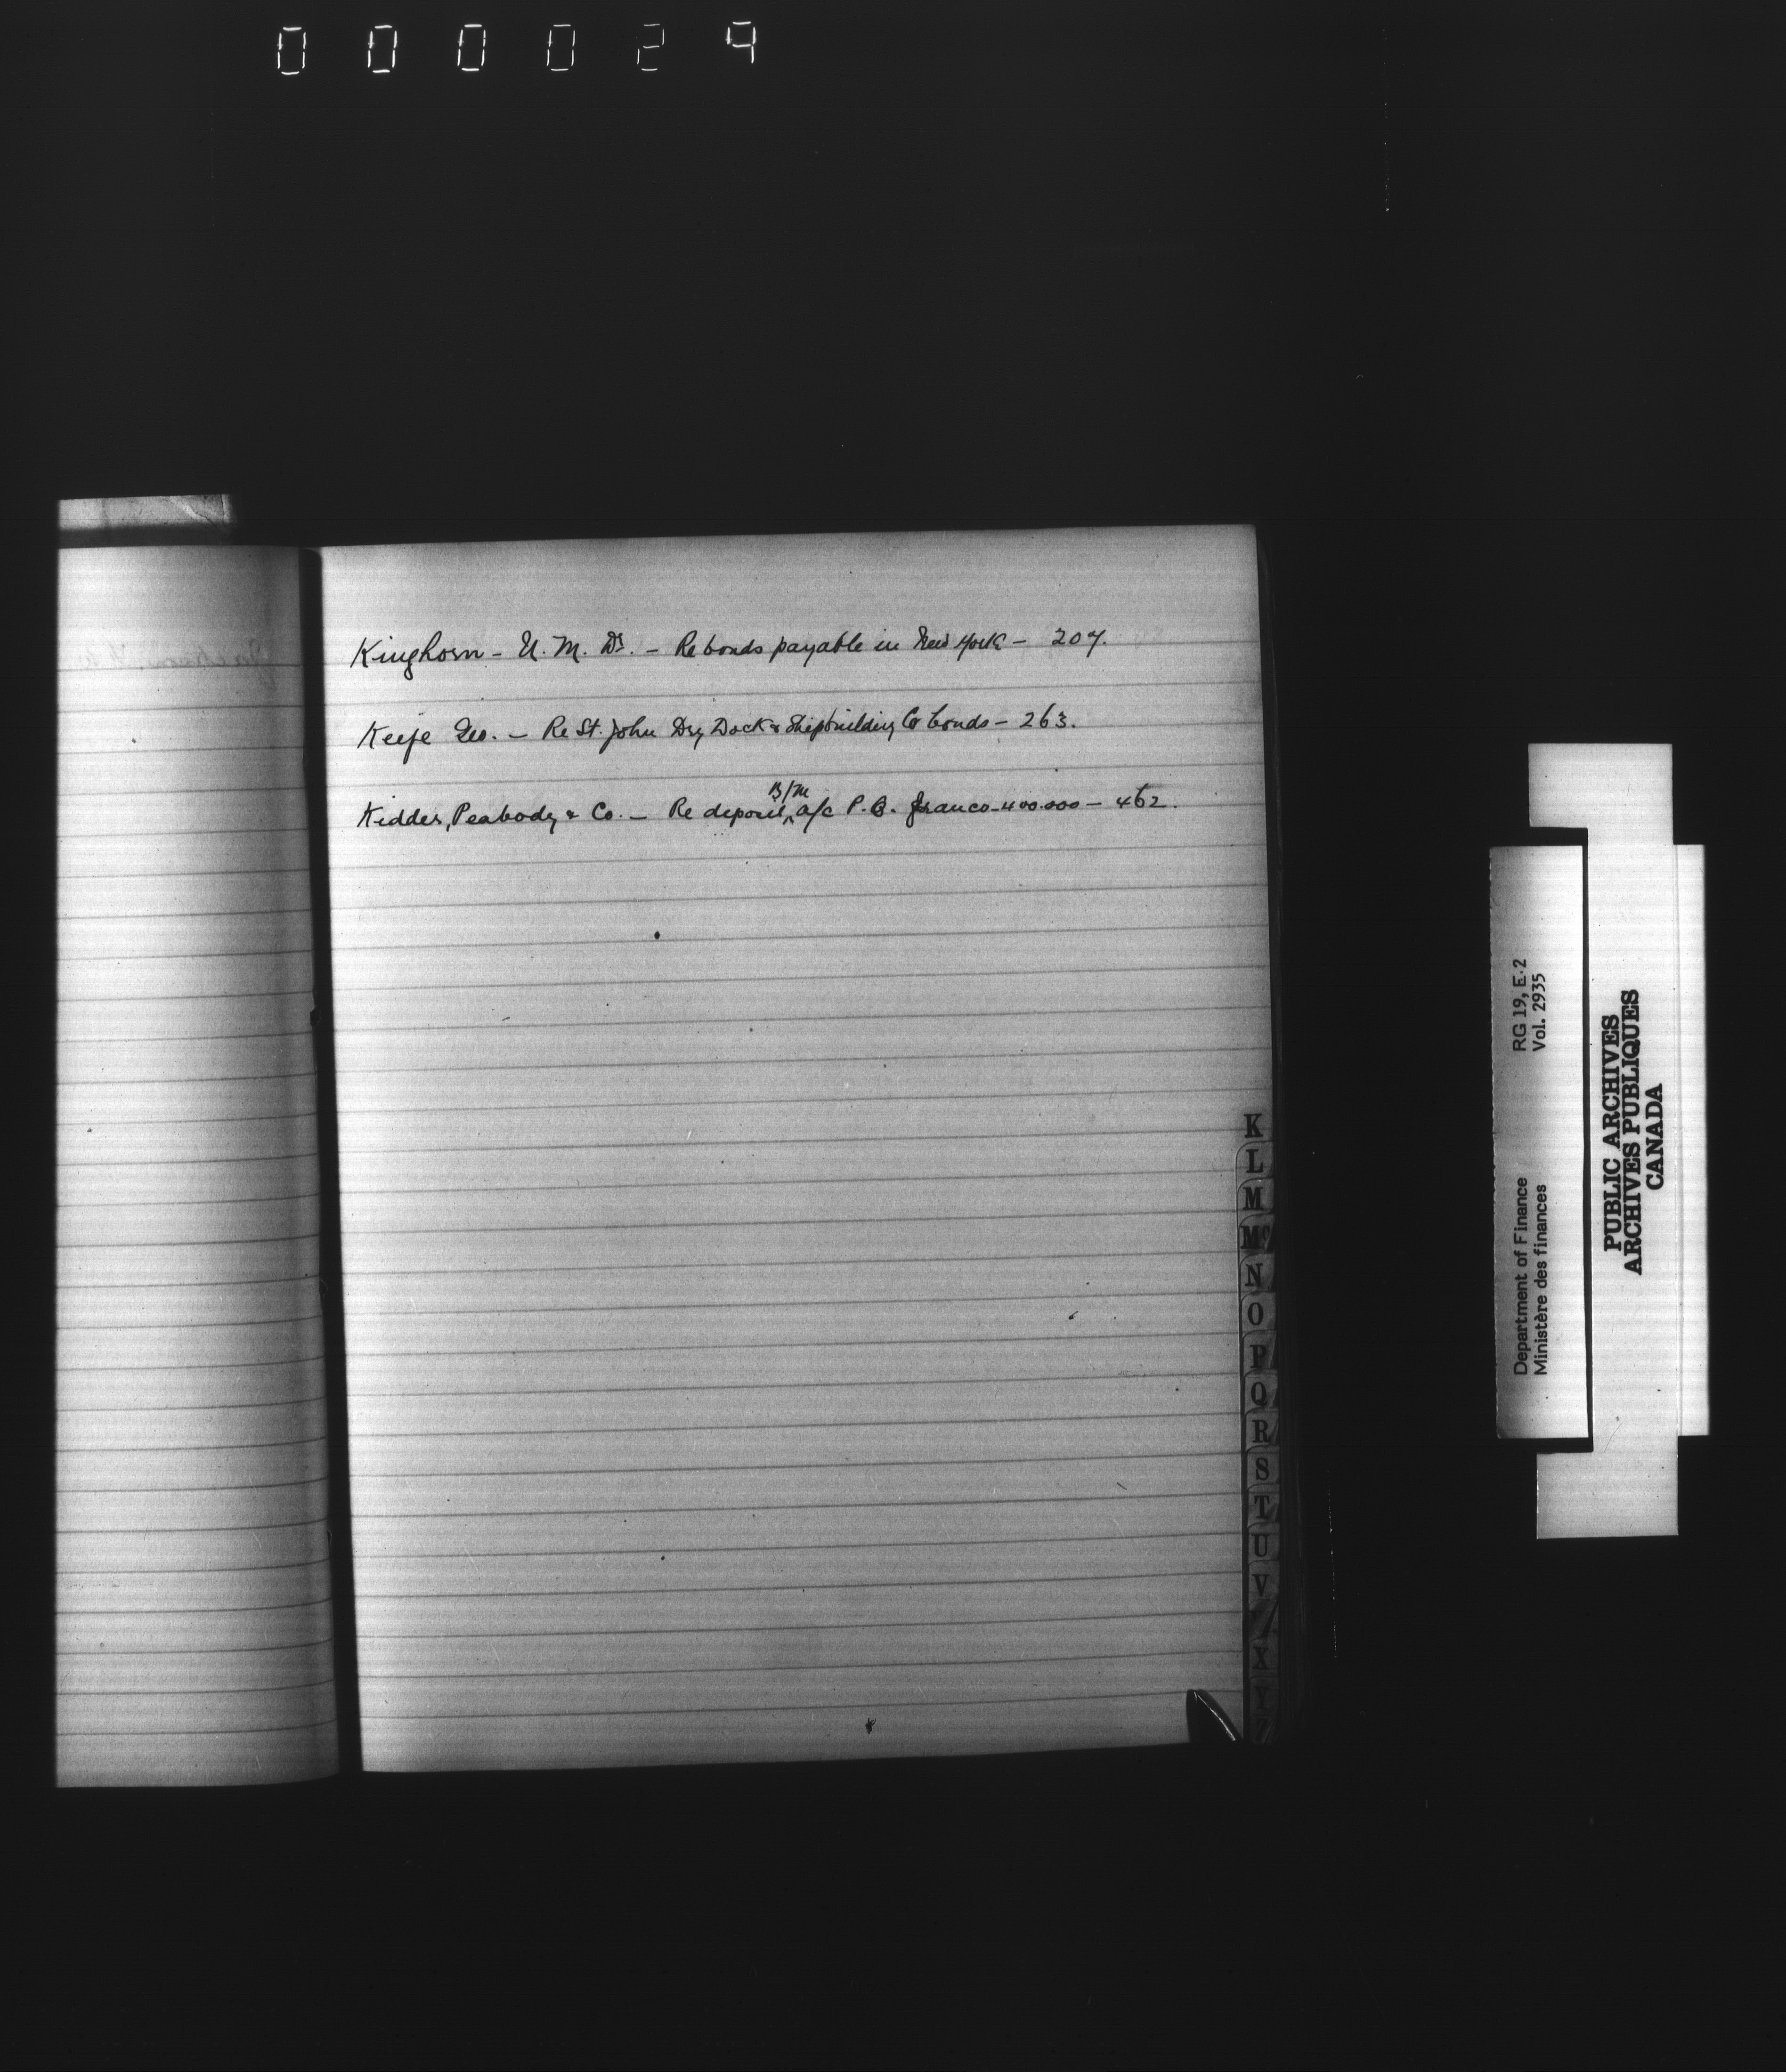 000024
Kinghorn - U. M. Dr. - Re bonds payable in New York - 207.
Keefe Geo. - Re St. John Dry Dock & Shipbuilding Co bonds - 263.
B/M
Kidder, Peabody & Co. - Re deposit, a/c P.C. francs - 400.000 - 462.
K
L
M
Mc
N
O
P
Q
R
S
T
U
V
X
Y
Z
Department of Finance RG 19, E.2
Ministère des finances Vol. 2935
PUBLIC ARCHIVES
ARCHIVES PUBLIQUES
CANADA